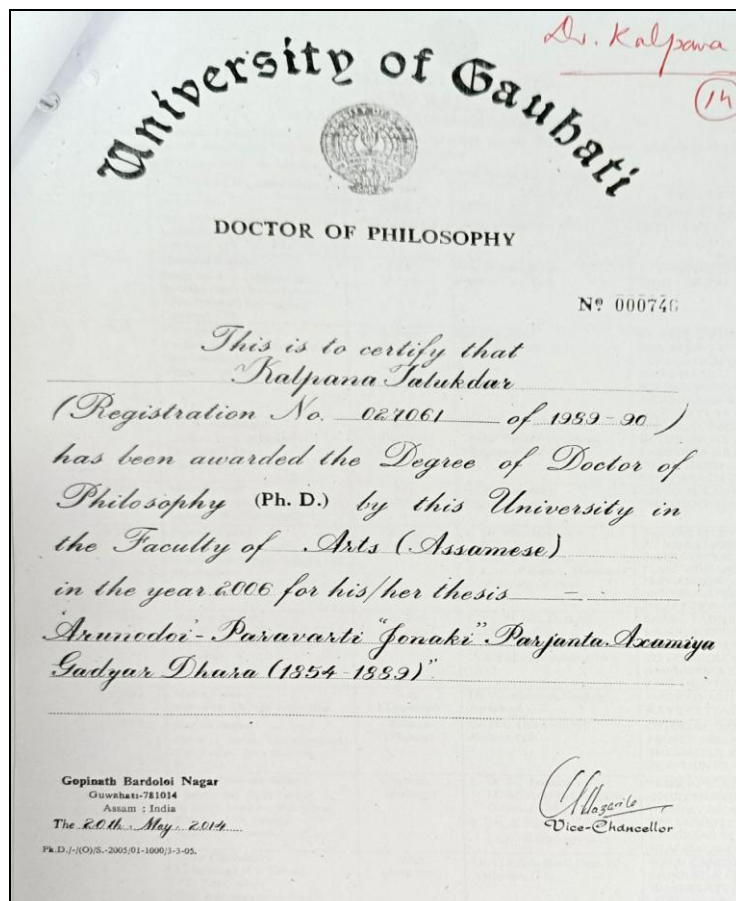 Dr. Kalpana
14
University of Gauhati
DOCTOR OF PHILOSOPHY
Nº 000746
This is to certify that
Kalpana Talukdar
(Registration No. 027061 of 1989-90)
has been awarded the Degree of Doctor of
Philosophy (Ph. D.) by this University in
the Faculty of Arts (Assamese)
in the year 2006 for his/her thesis –
'Arunodoi'- Paravarti "Jonaki" Parjanta Axamiya
Gadyar Dhara (1854-1889)"
Gopinath Bardoloi Nagar
Guwahati-781014
Assam : India
The 20th. May. 2014
Vice-Chancellor
Ph.D./-/(O)/S.-2005/01-1000/3-3-05.